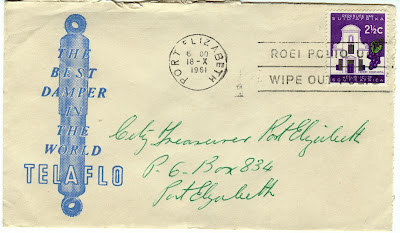 THE
BEST
DAMPER
IN
THE
WORLD
TELAFLO
PORT ELIZABETH
6 00
18-X
1961
ROEI POLIO U
WIPE OUT
2½c
City Treasurer Port Elizabeth
P. O. Box 834
Port Elizabeth